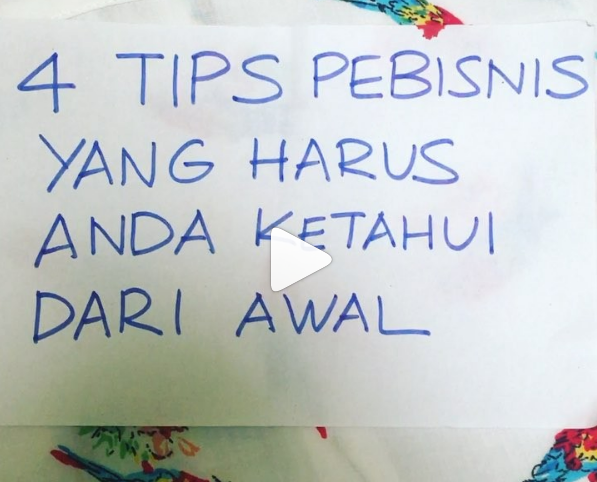 4 TIPS PEBISNIS
YANG HARUS
ANDA KETAHUI
DARI AWAL